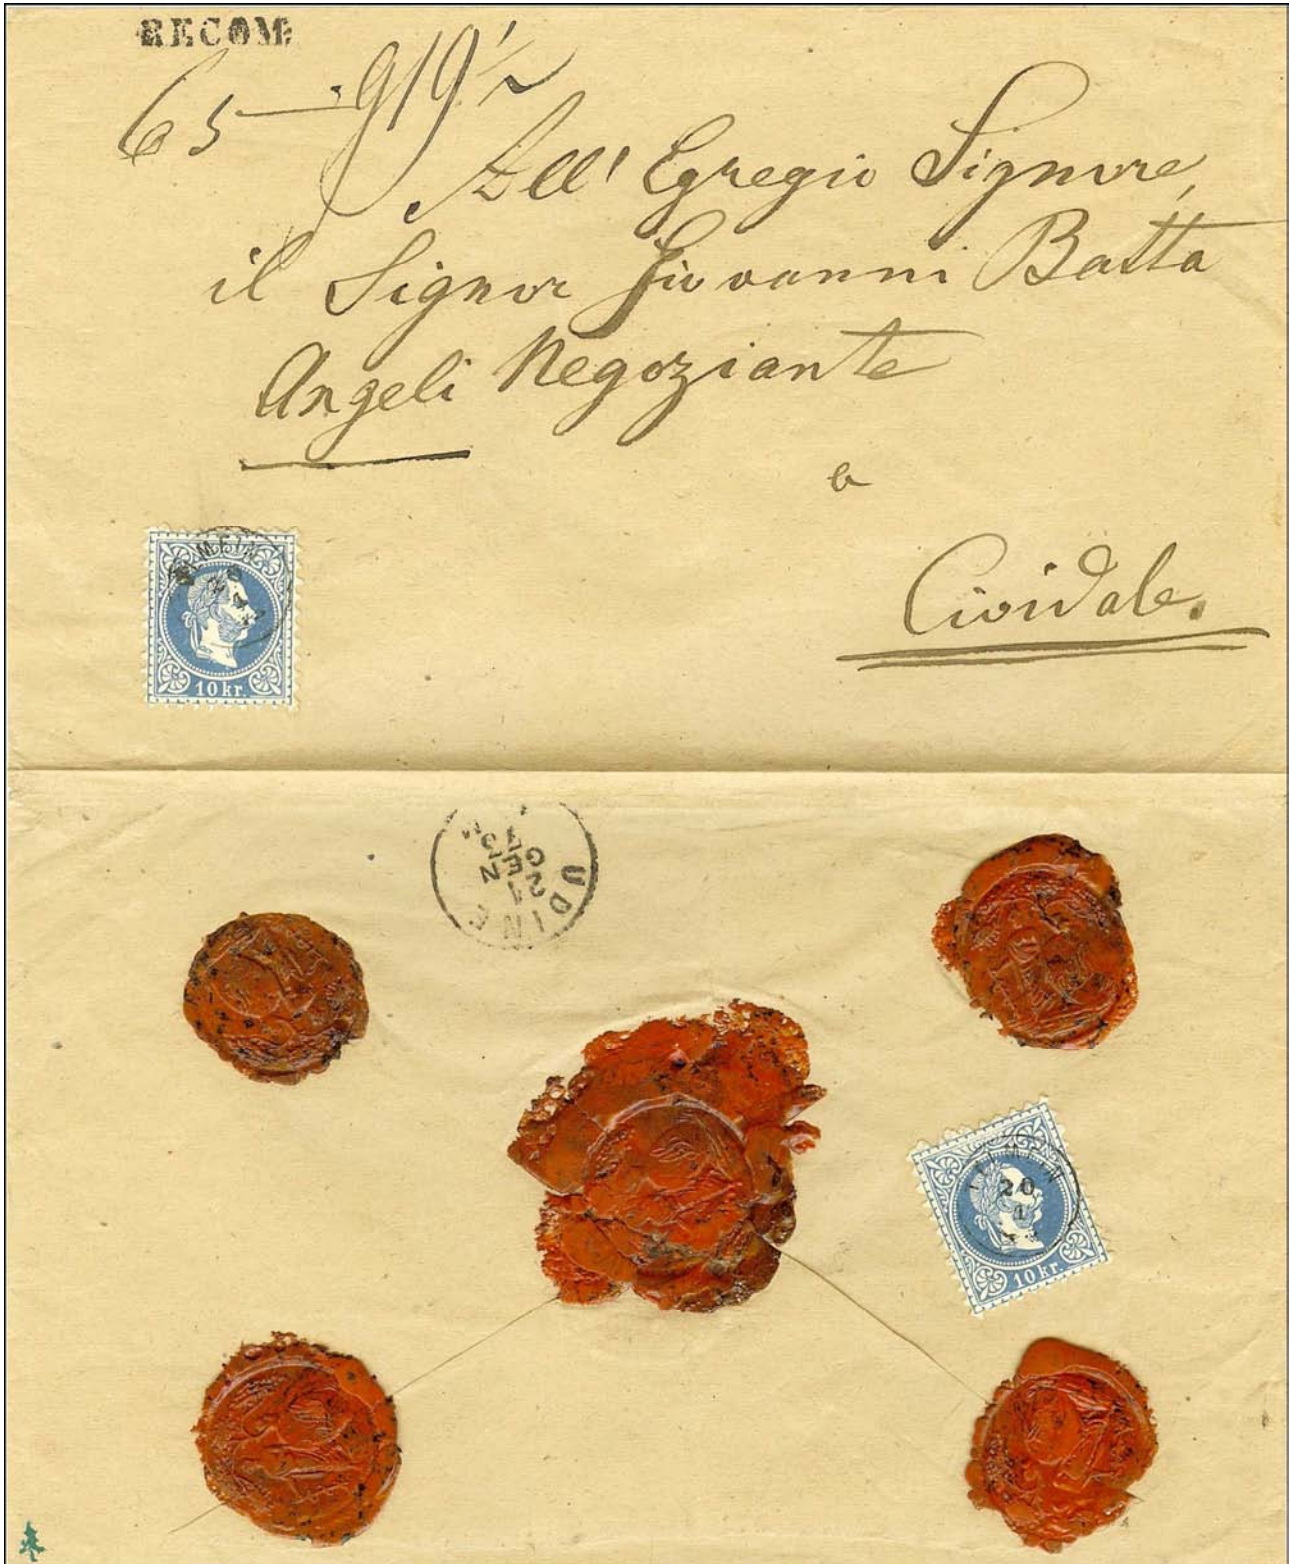 RECOM
65 919½
All' Egregio Signore,
il Signor Giovanni Batta
Angeli Negoziante
a
Cividale.
20
1
10 kr.
UDINE
21
GEN
73
TOLMEIN
20
1
10 kr.